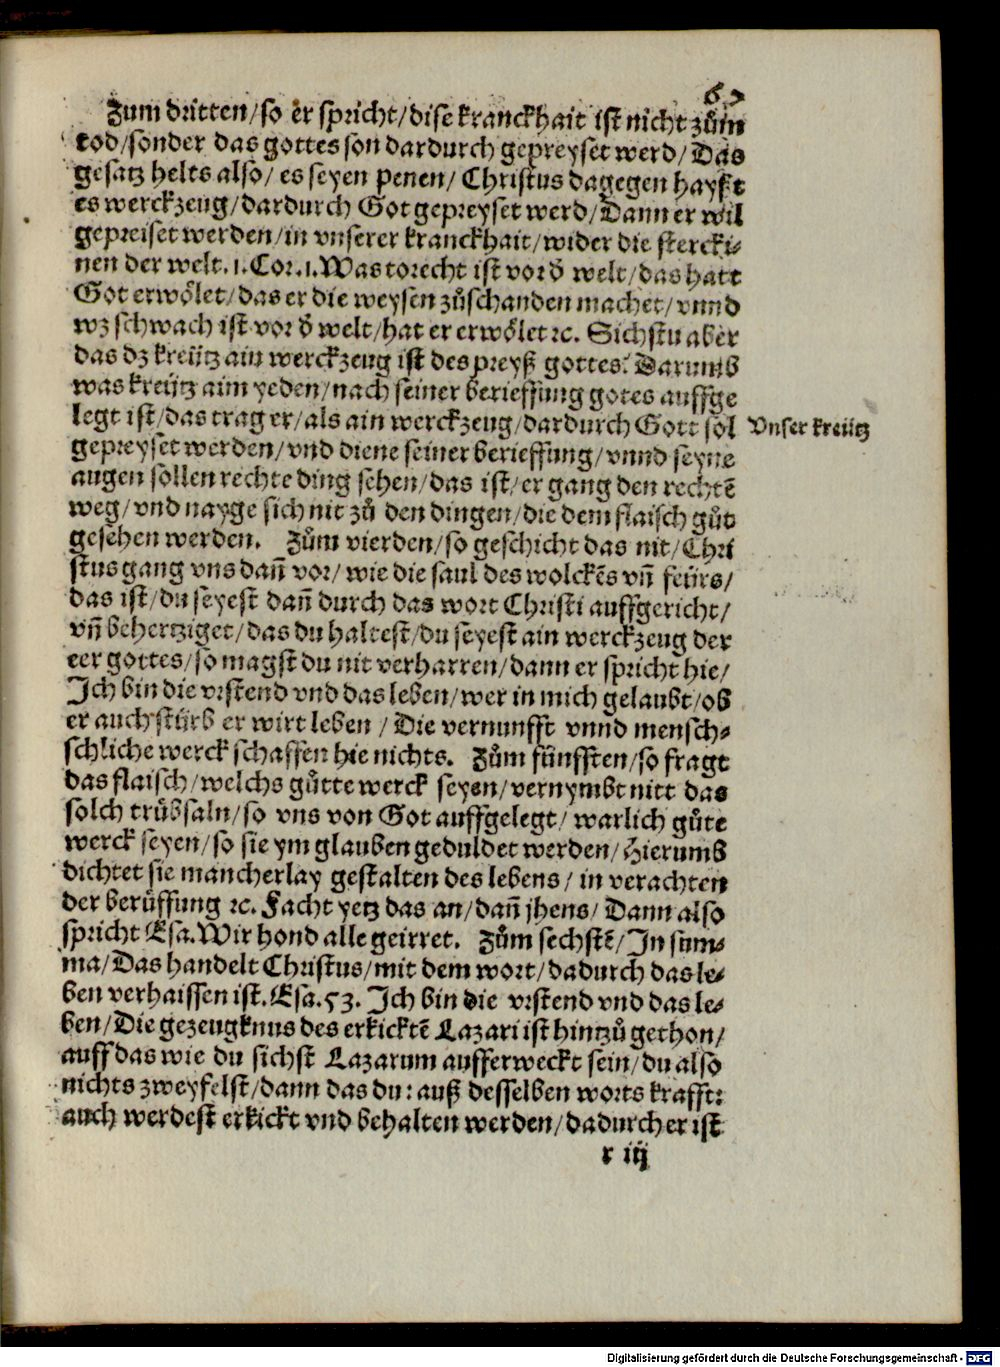 67
Zum dritten/so er spricht/dise kranckhait ist nicht zům
tod/sonder das gottes son dardurch gepreyset werd/Das
gesatz helts also/es seyen penen/Christus dagegen hayßt
es werckzeug/dardurch Got gepreyset werd/Dann er wil
gepreiset werden/in vnserer kranckhait/wider die stercki-
nen der welt.1.Cor.1.Was torecht ist vor ð welt/das hatt
Got erwölet/das er die weysen zůschanden machet/vnnd
wz schwach ist vor ð welt/hat er erwölet ꝛc. Sichstu aber
das dz kreütz ain werckzeug ist des preyß gottes. Darumb
was kreütz aim yeden/nach seiner berieffung gotes auffge
legt ist/das trag er/als ain werckzeug/dardurch Gott sol
Vnser kreütz
gepreyset werden/vnd diene seiner berieffung/vnnd seyne
augen sollen rechte ding sehen/das ist/er gang den rechtē
weg/vnd nayge sich nit zů den dingen/die dem flaisch gůt
gesehen werden. Zům vierden/so geschicht das nit/Chri
stus gang vns dañ vor/wie die saul des wolckēs vñ feürs/
das ist/du seyest dañ durch das wort Christi auffgericht/
vñ behertziget/das du haltest/du seyest ain werckzeug der
eer gottes/so magst du nit verharren/dann er spricht hie/
Ich bin die vrstend vnd das leben/wer in mich gelaubt/ob
er auch stürb er wirt leben/Die vernunfft vnnd mensch-
schliche werck schaffen hie nichts. Zům fünfften/so fragt
das flaisch/welchs gůtte werck seyen/vernymbt nitt das
solch trübsaln/so vns von Got auffgelegt/warlich gůte
werck seyen/so sie ym glauben geduldet werden/Hierumb
dichtet sie mancherlay gestalten des lebens/in verachten
der berüffung ꝛc. Facht yetz das an/dañ jhens/Dann also
spricht Esa.Wir hond alle geirret. Zům sechstē/In sum-
ma/Das handelt Christus/mit dem wort/dadurch das le-
ben verhaissen ist.Esa.53. Ich bin die vrstend vnd das le-
ben/Die gezeugknus des erkicktē Lazari ist hintzů gethon/
auff das wie du sichst Lazarum aufferweckt sein/du also
nichts zweyfelst/dann das du: auß desselben worts krafft:
auch werdest erkickt vnd behalten werden/dadurch er ist
r iij
Digitalisierung gefördert durch die Deutsche Forschungsgemeinschaft - DFG